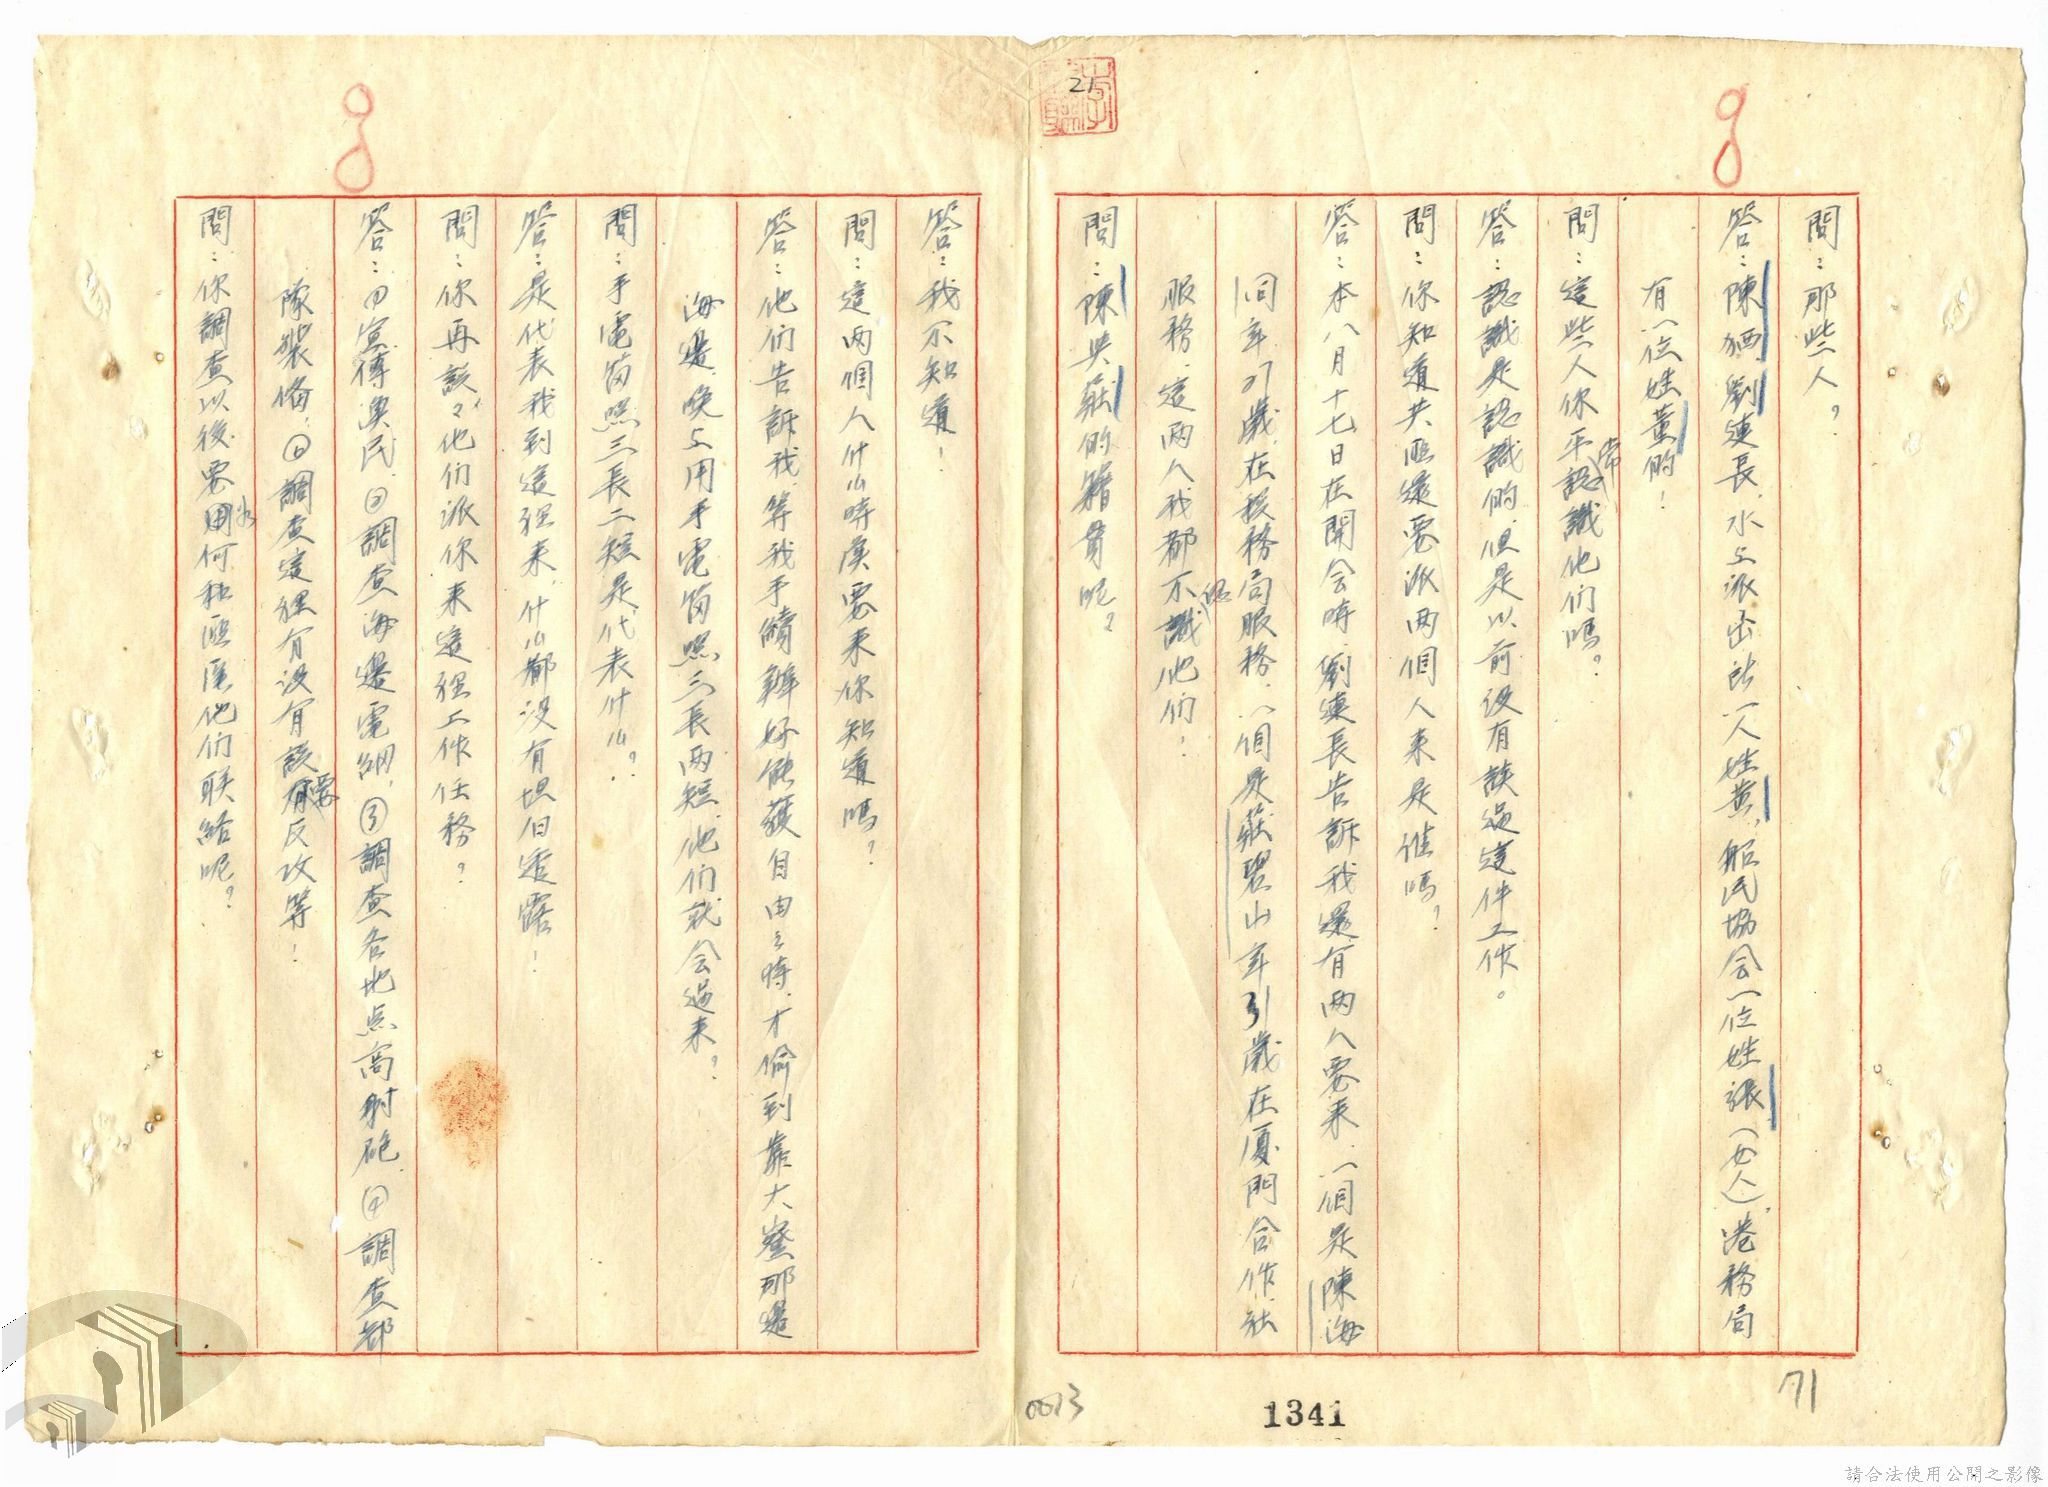 21
問：那些人？
答：陳𤞏、劉連長，水上派出所一人姓黄，船民協会一位姓張（女人），港務局
有一位姓董的！
問：這些人你平常認識他們嗎？
答：認識是認識的，但是以前没有談過這件工作。
問：你知道共匪還要派两個人来是誰嗎？
答：本八月十七日在開会時，劉連長告訴我還有两人要来，一個是陳海
同年37歲，在稅務局服務，一個是莊碧山年31歲在厦門合作社
服務，這两人我都不認識他們！
問：陳與莊的籍貫呢？
答：我不知道！
問：這两個人什么時候要来你知道嗎？
答：他们告訴我，等我手續辦好能獲自由之時，才偷到靠大嶝那邊
海邊，晚上用手電筒照三長两短，他们就会過来？
問：手電筒照三長二短是代表什么？
答：是代表我到這裡来，什么都没有坦白透露！
問：你再談々他们派你来這裡工作任務？
答：①宣傳漁民，②調查海邊電網，③調查各地点高射砲，④調查部
隊裝俻，⑥調查這裡有没有談要反攻等！
問：你調查以後要用何和匪區他们联絡呢？
0073
1341
71
請合法使用公開之影像